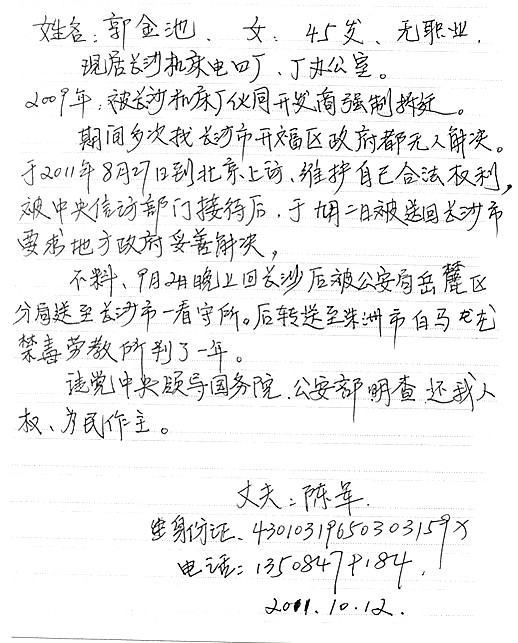 姓名:郭金池、女:45岁、无职业.
现居长沙机床电口厂、厂办公室。
2009年,被长沙机床厂伙同开发商强制拆迁。
期间多次找长沙市开福区政府都无人解决。
于2011年8月27日到北京上访,维护自己合法权利,
被中央信访部门接待后,于九月二日被送回长沙市
要求地方政府妥善解决,
不料、9月2日晚上回长沙后被公安局岳麓区
分局送至长沙市一看守所。后转送至株洲市白马龙
禁毒劳教所判了一年。
请党中央领导国务院、公安部明查还我人
权、为民作主。
丈夫:陈军.
身份证、43010319650303159X
电话:13508474184.
2011.10.12.